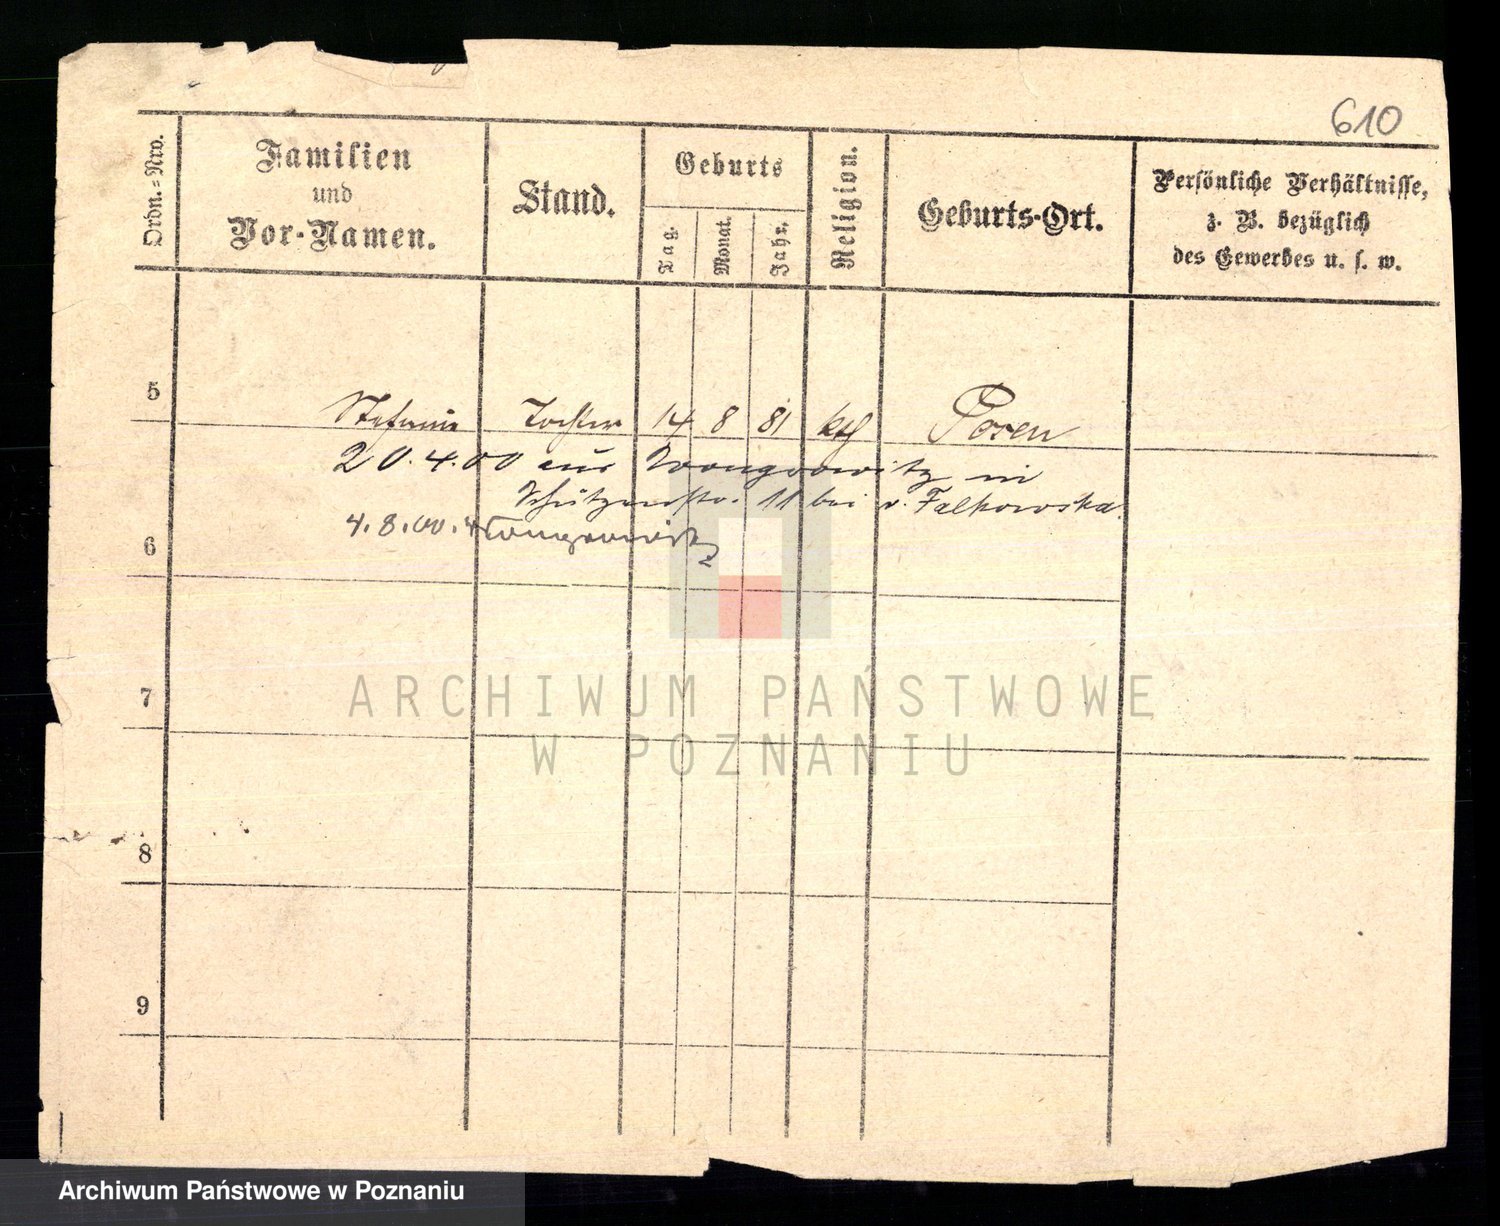 610
Ordn.=Nro.
Familien
und
Vor-Namen.
Stand.
Geburts
Tag.
Monat.
Jahr.
Religion.
Geburts-Ort.
Persönliche Verhältnisse,
z. B. bezüglich
des Gewerbes u. s. w.
5
Stefanie Tochter 14 8 81 kth Posen
20.4.00 aus Wongrowitz in
Schützenstr. 11 bei v. Falkowska.
6
4.8.00. Wongrowitz
7
8
9
ARCHIWUM PAŃSTWOWE
W POZNANIU
Archiwum Państwowe w Poznaniu